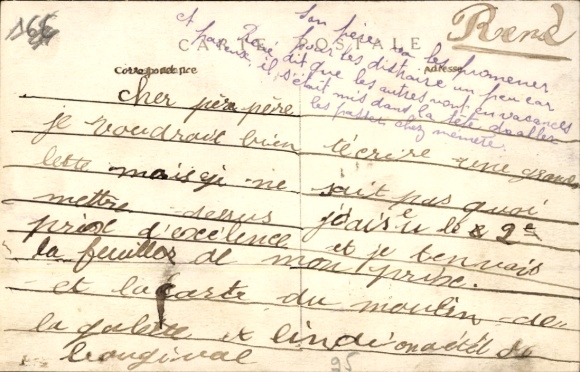 166
René
Son père va les promener
et pour les distraire un peu car
René dit que les autres vont en vacances
pareux, il s'était mis dans la tête d'aller
les passer chez mémère.
CARTE POSTALE
Correspondance
Adresse
cher père père
je voudrait bien t'écrire une grande
lette mais je ne sait pas quoi
mettre desus j'ais u le 2e
prix d'exelence et je t'envais
la feuilles de mon prix.
et la carte du moulin de
la galette et l'inde on a été de
bougival
95